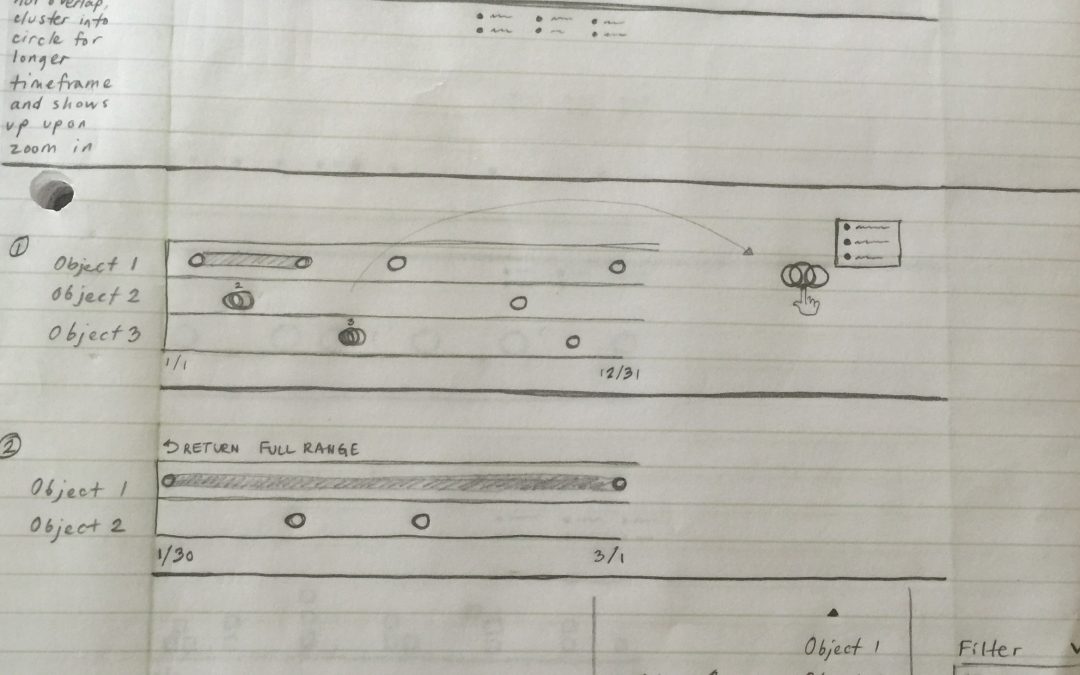 not overlap,
cluster into
circle for
longer
timeframe
and shows
up upon
zoom in
1
Object 1
Object 2
2
Object 3
3
1/1
12/31
2
RETURN FULL RANGE
Object 1
Object 2
1/30
3/1
Object 1
Filter